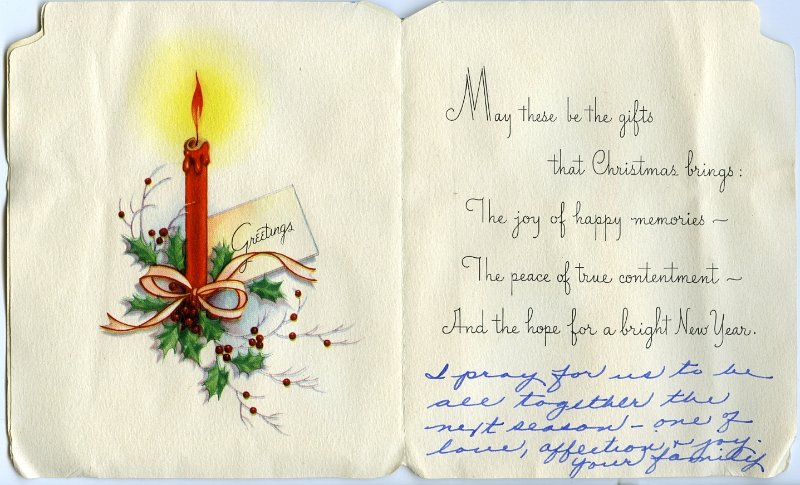 Greetings
May these be the gifts
that Christmas brings:
The joy of happy memories ~
The peace of true contentment ~
And the hope for a bright New Year.
I pray for us to be
all together the
next season - one of
love, affection & joy.
your family